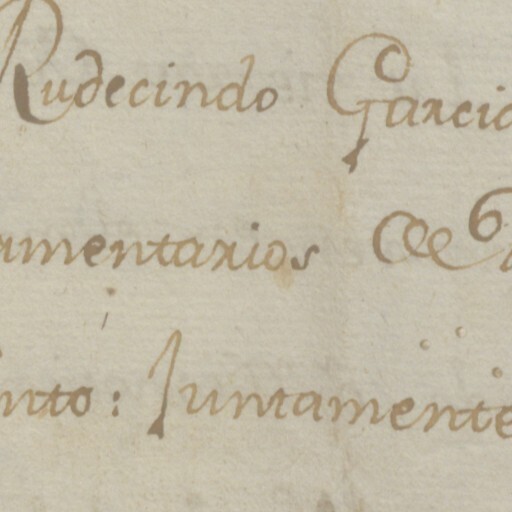 Rudecindo Garcia
amentarios
nto: Juntamente